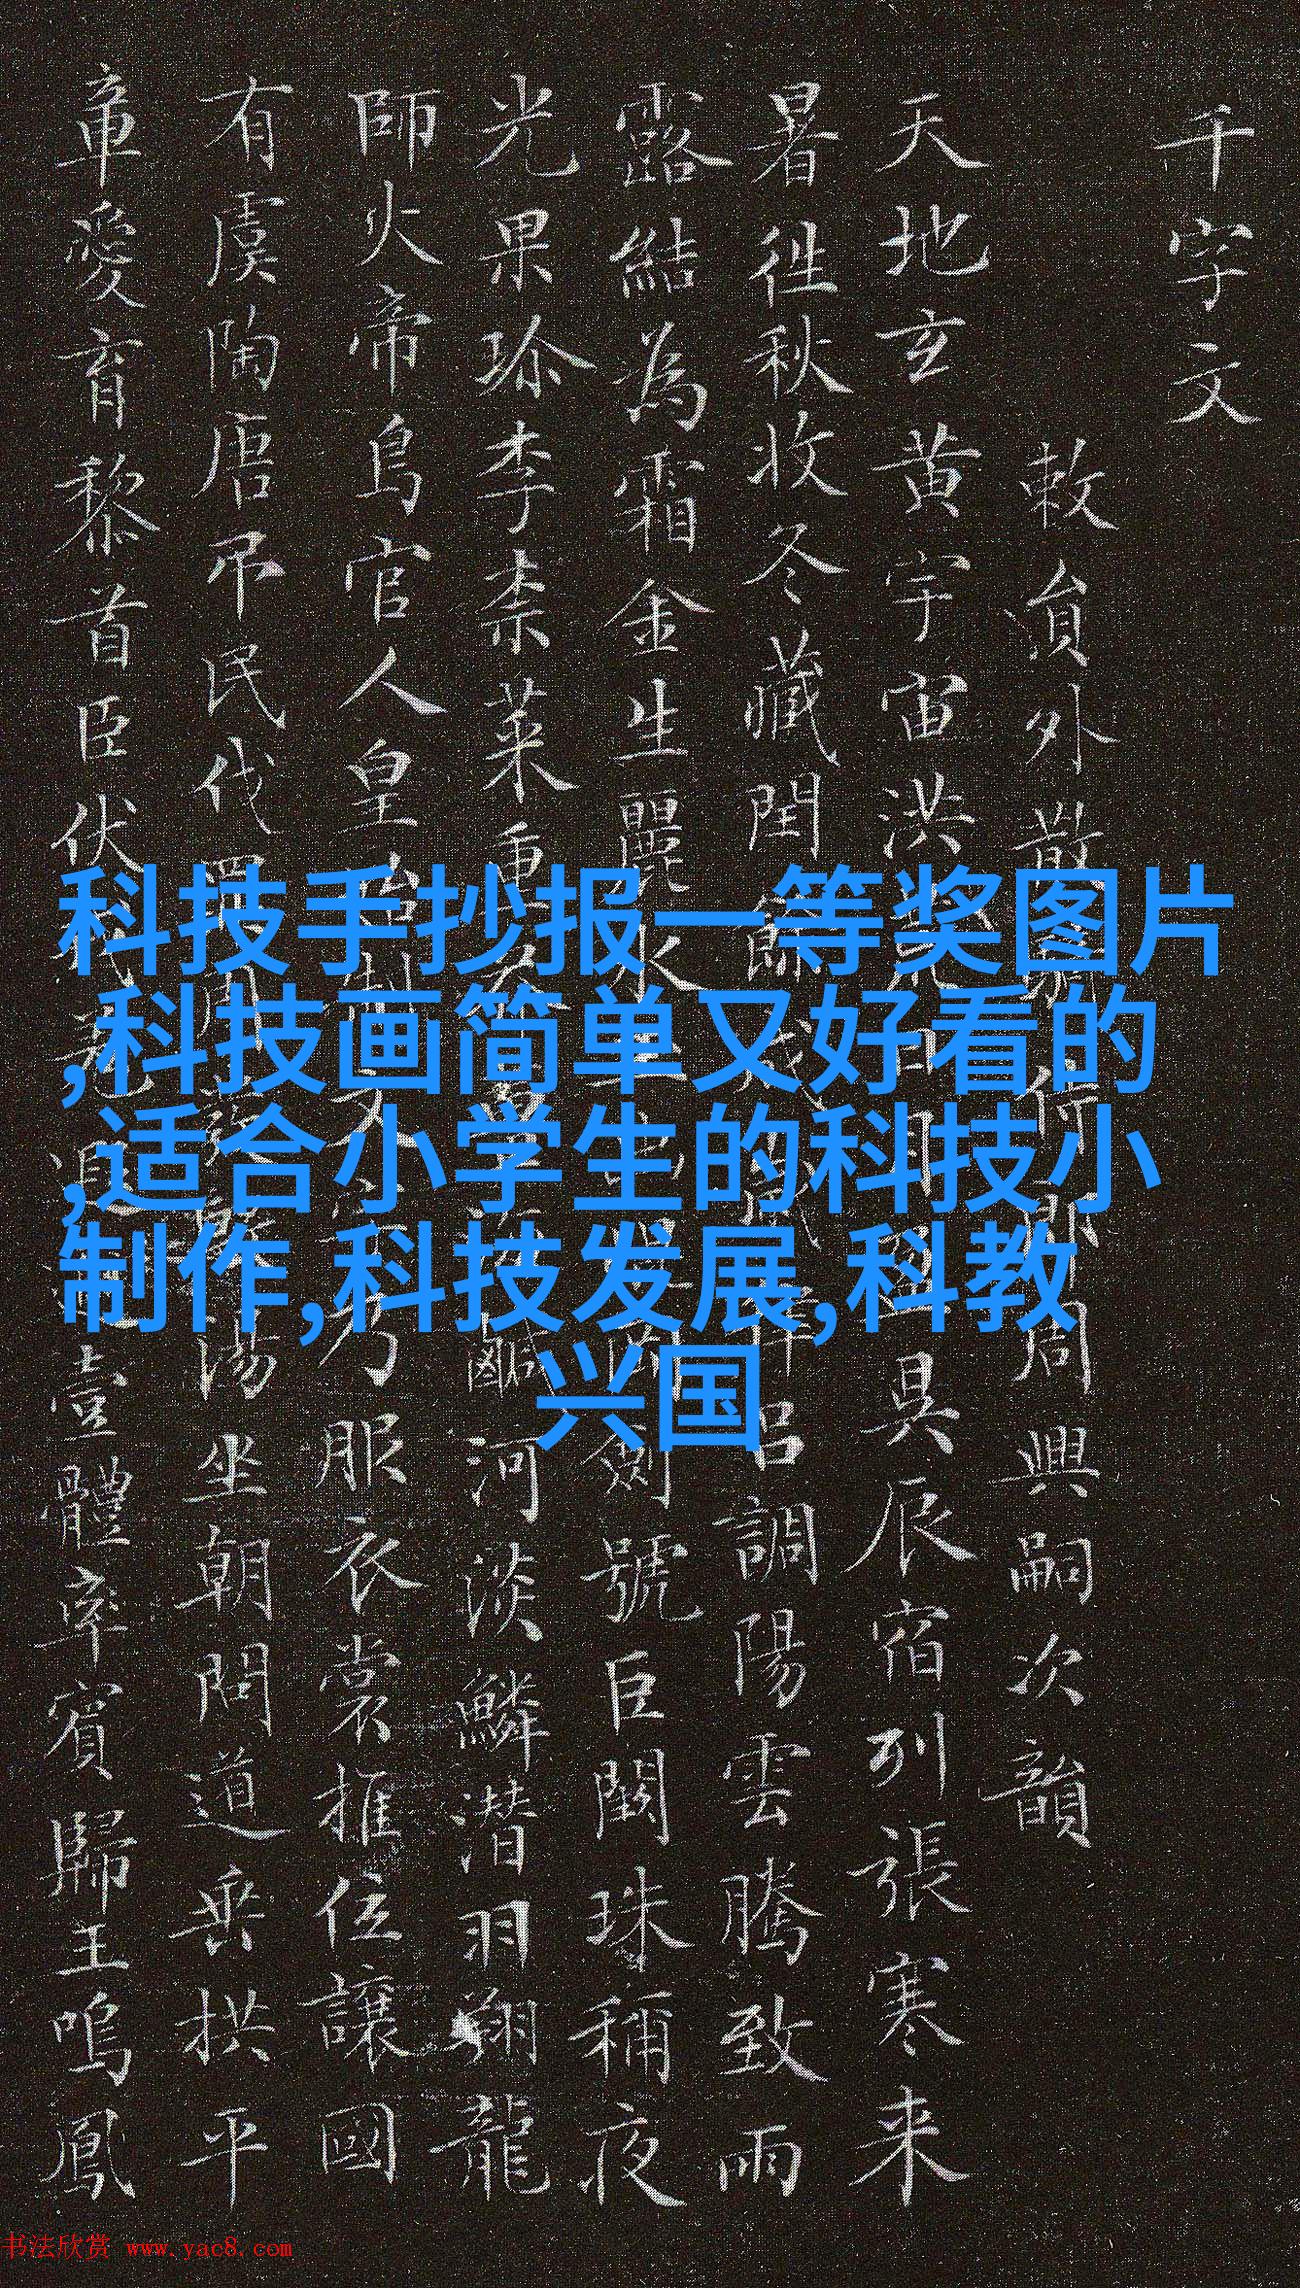 千字文
敕員外散周興嗣次韻
天地玄黄宇宙洪日月昃辰宿列張寒来
暑往秋收冬藏閏餘呂調陽雲騰致雨
露結為霜金生麗水劍號巨闕珠稱夜
光果珍李柰菜重鹹河淡鱗潛羽翔龍
師火帝鳥官人皇始制文乃服衣裳推位讓國
有虞陶唐吊民伐罪周湯坐朝問道垂拱平
章愛育黎首臣伏壹體率賓歸王鳴鳳
科技手抄报一等奖图片
,科技画简单又好看的
,适合小学生的科技小
制作,科技发展,科教
兴国
书法欣赏 www.yac8.com